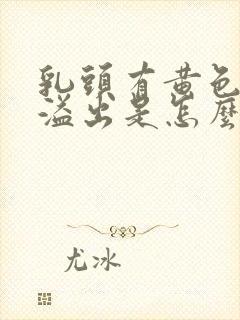 乳頭有黃色
溢出是怎麼
尤冰